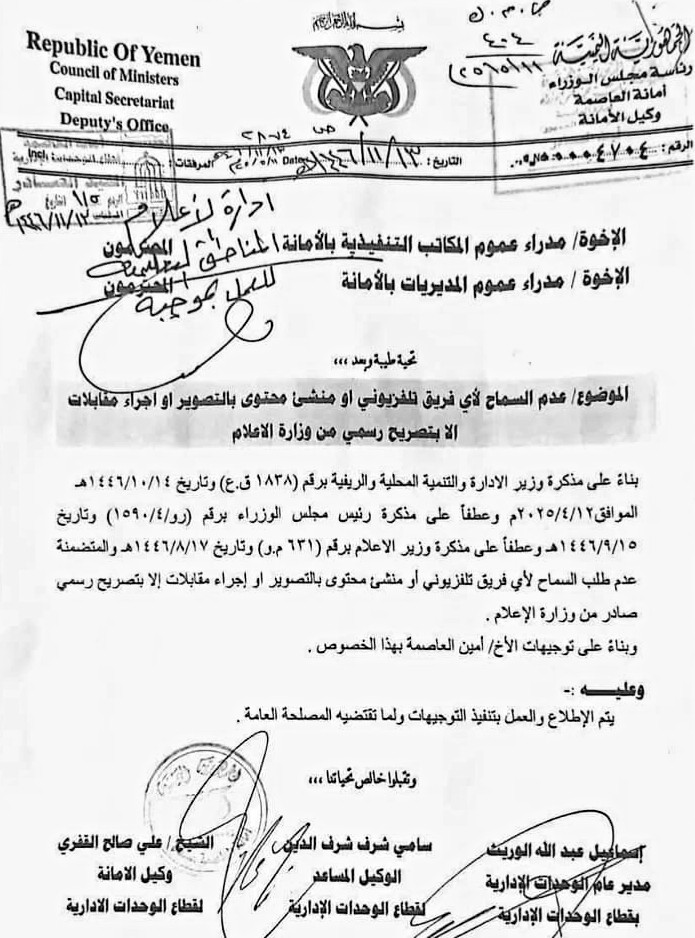 Republic Of Yemen
Council of Ministers
Capital Secretariat
Deputy's Office
الجمهورية اليمنية
رئاسة مجلس الوزراء
أمانة العاصمة
وكيل الأمانة
الرقم: ٤٧٠٤
التاريخ: ١٤٤٦/١١/١٣هـ
Date
المرفقات:
Incl
ادارة الأعلام
المناطق التعليمية
للعمل بموجبه
١٤٤٦/١١/١٣هـ
الإخوة/ مدراء عموم المكاتب التنفيذية بالأمانة المحترمون
الإخوة / مدراء عموم المديريات بالأمانة المحترمون
تحية طيبة وبعد ،،،
الموضوع/ عدم السماح لأي فريق تلفزيوني او منشئ محتوى بالتصوير او اجراء مقابلات
الا بتصريح رسمي من وزارة الاعلام
بناءً على مذكرة وزير الادارة والتنمية المحلية والريفية برقم (١٨٣٨ ق.ع) وتاريخ ١٤٤٦/١٠/١٤هـ
الموافق٢٠٢٥/٤/١٢م وعطفاً على مذكرة رئيس مجلس الوزراء برقم (رو/١٥٩٠/٤) وتاريخ
١٤٤٦/٩/١٥هـ وعطفاً على مذكرة وزير الاعلام برقم (٦٣١ م.و) وتاريخ ١٤٤٦/٨/١٧هـ والمتضمنة
عدم طلب السماح لأي فريق تلفزيوني أو منشئ محتوى بالتصوير او إجراء مقابلات إلا بتصريح رسمي
صادر من وزارة الإعلام .
وبناءً على توجيهات الأخ/ أمين العاصمة بهذا الخصوص .
وعليـــه :-
يتم الإطلاع والعمل بتنفيذ التوجيهات ولما تقتضيه المصلحة العامة .
وتقبلوا خالص تحياتنا ،،،
إسماعيل عبد الله الوريث
مدير عام الوحدات الإدارية
بقطاع الوحدات الإدارية
سامي شرف شرف الدين
الوكيل المساعد
لقطاع الوحدات الإدارية
الشيخ/ علي صالح القفري
وكيل الامانة
لقطاع الوحدات الادارية